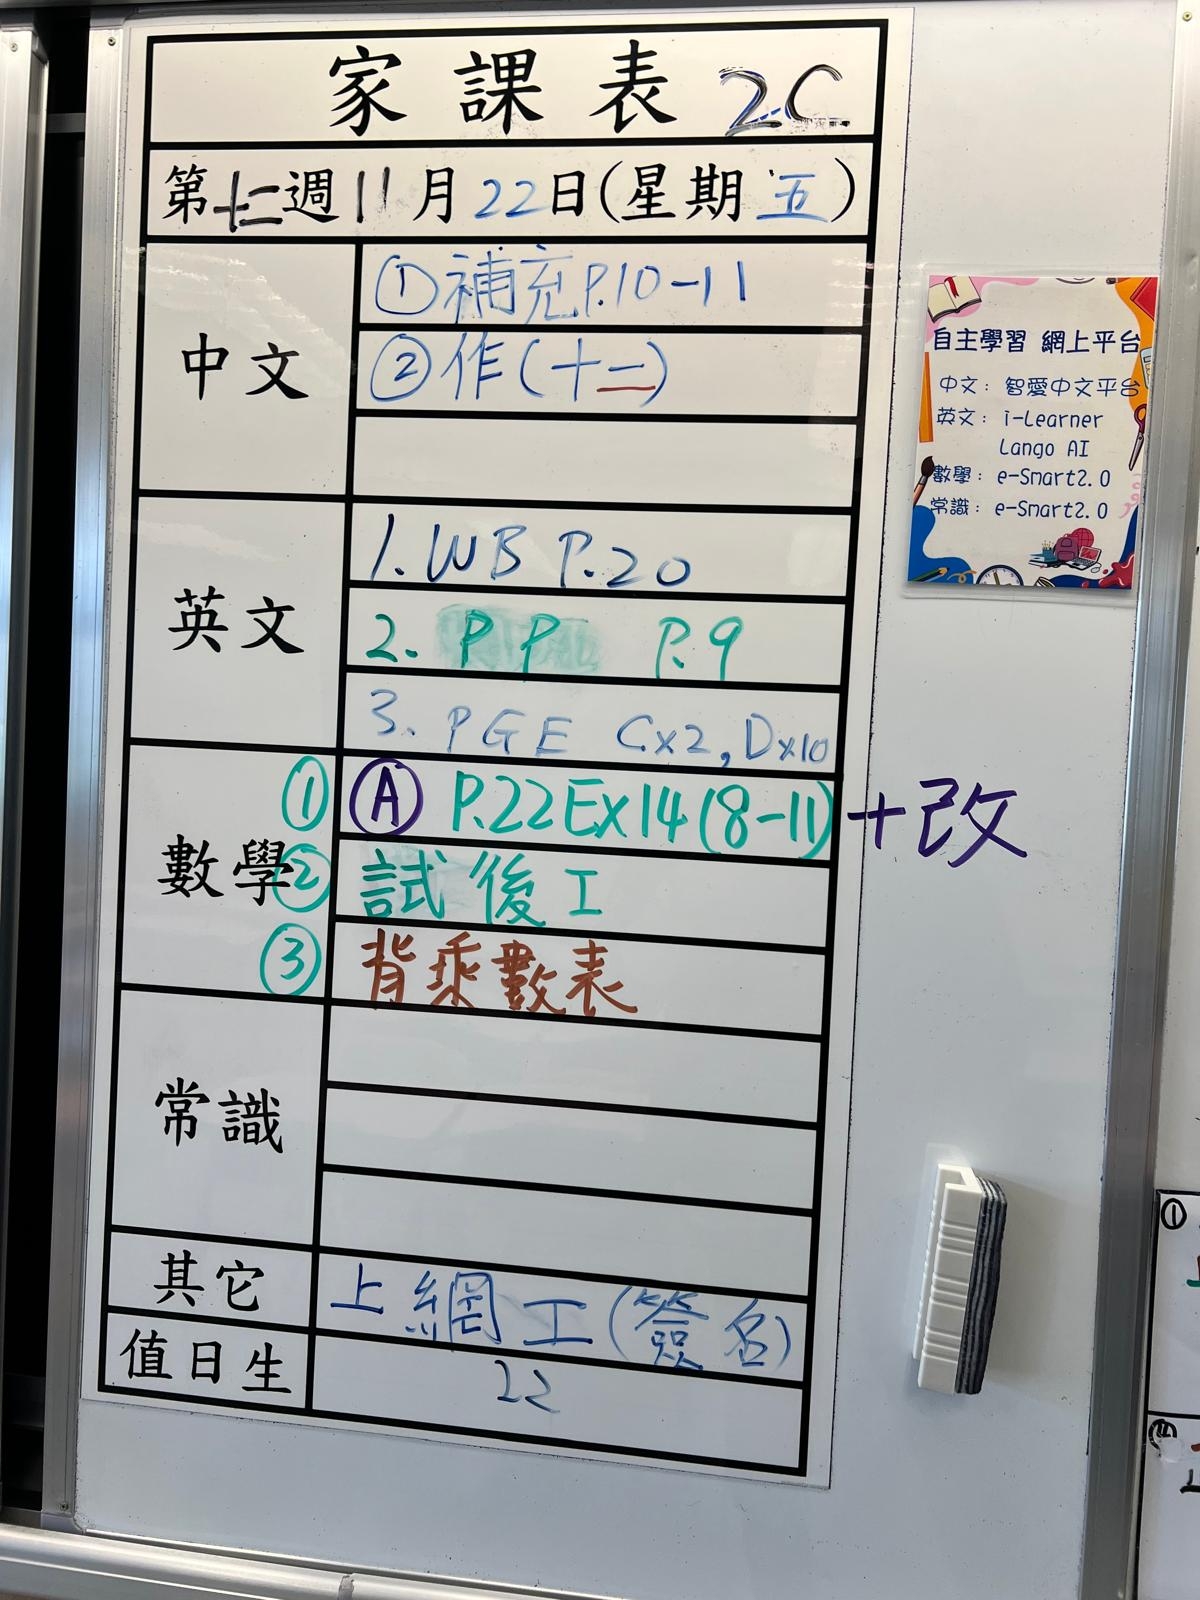 家課表 2C
第十二週11月22日(星期五)
中文
①補充P.10-11
②作(十一)
英文
1. WB P.20
2. PP P.9
3. PGE Cx2, Dx10
數學
① Ⓐ P.22 Ex14(8-11)+改
② 試後工
③ 背乘數表
常識
其它
上網工(簽名)
值日生
22
自主學習 網上平台
中文: 智愛中文平台
英文: i-Learner
Lango AI
數學: e-Smart2.0
常識: e-Smart2.0
①